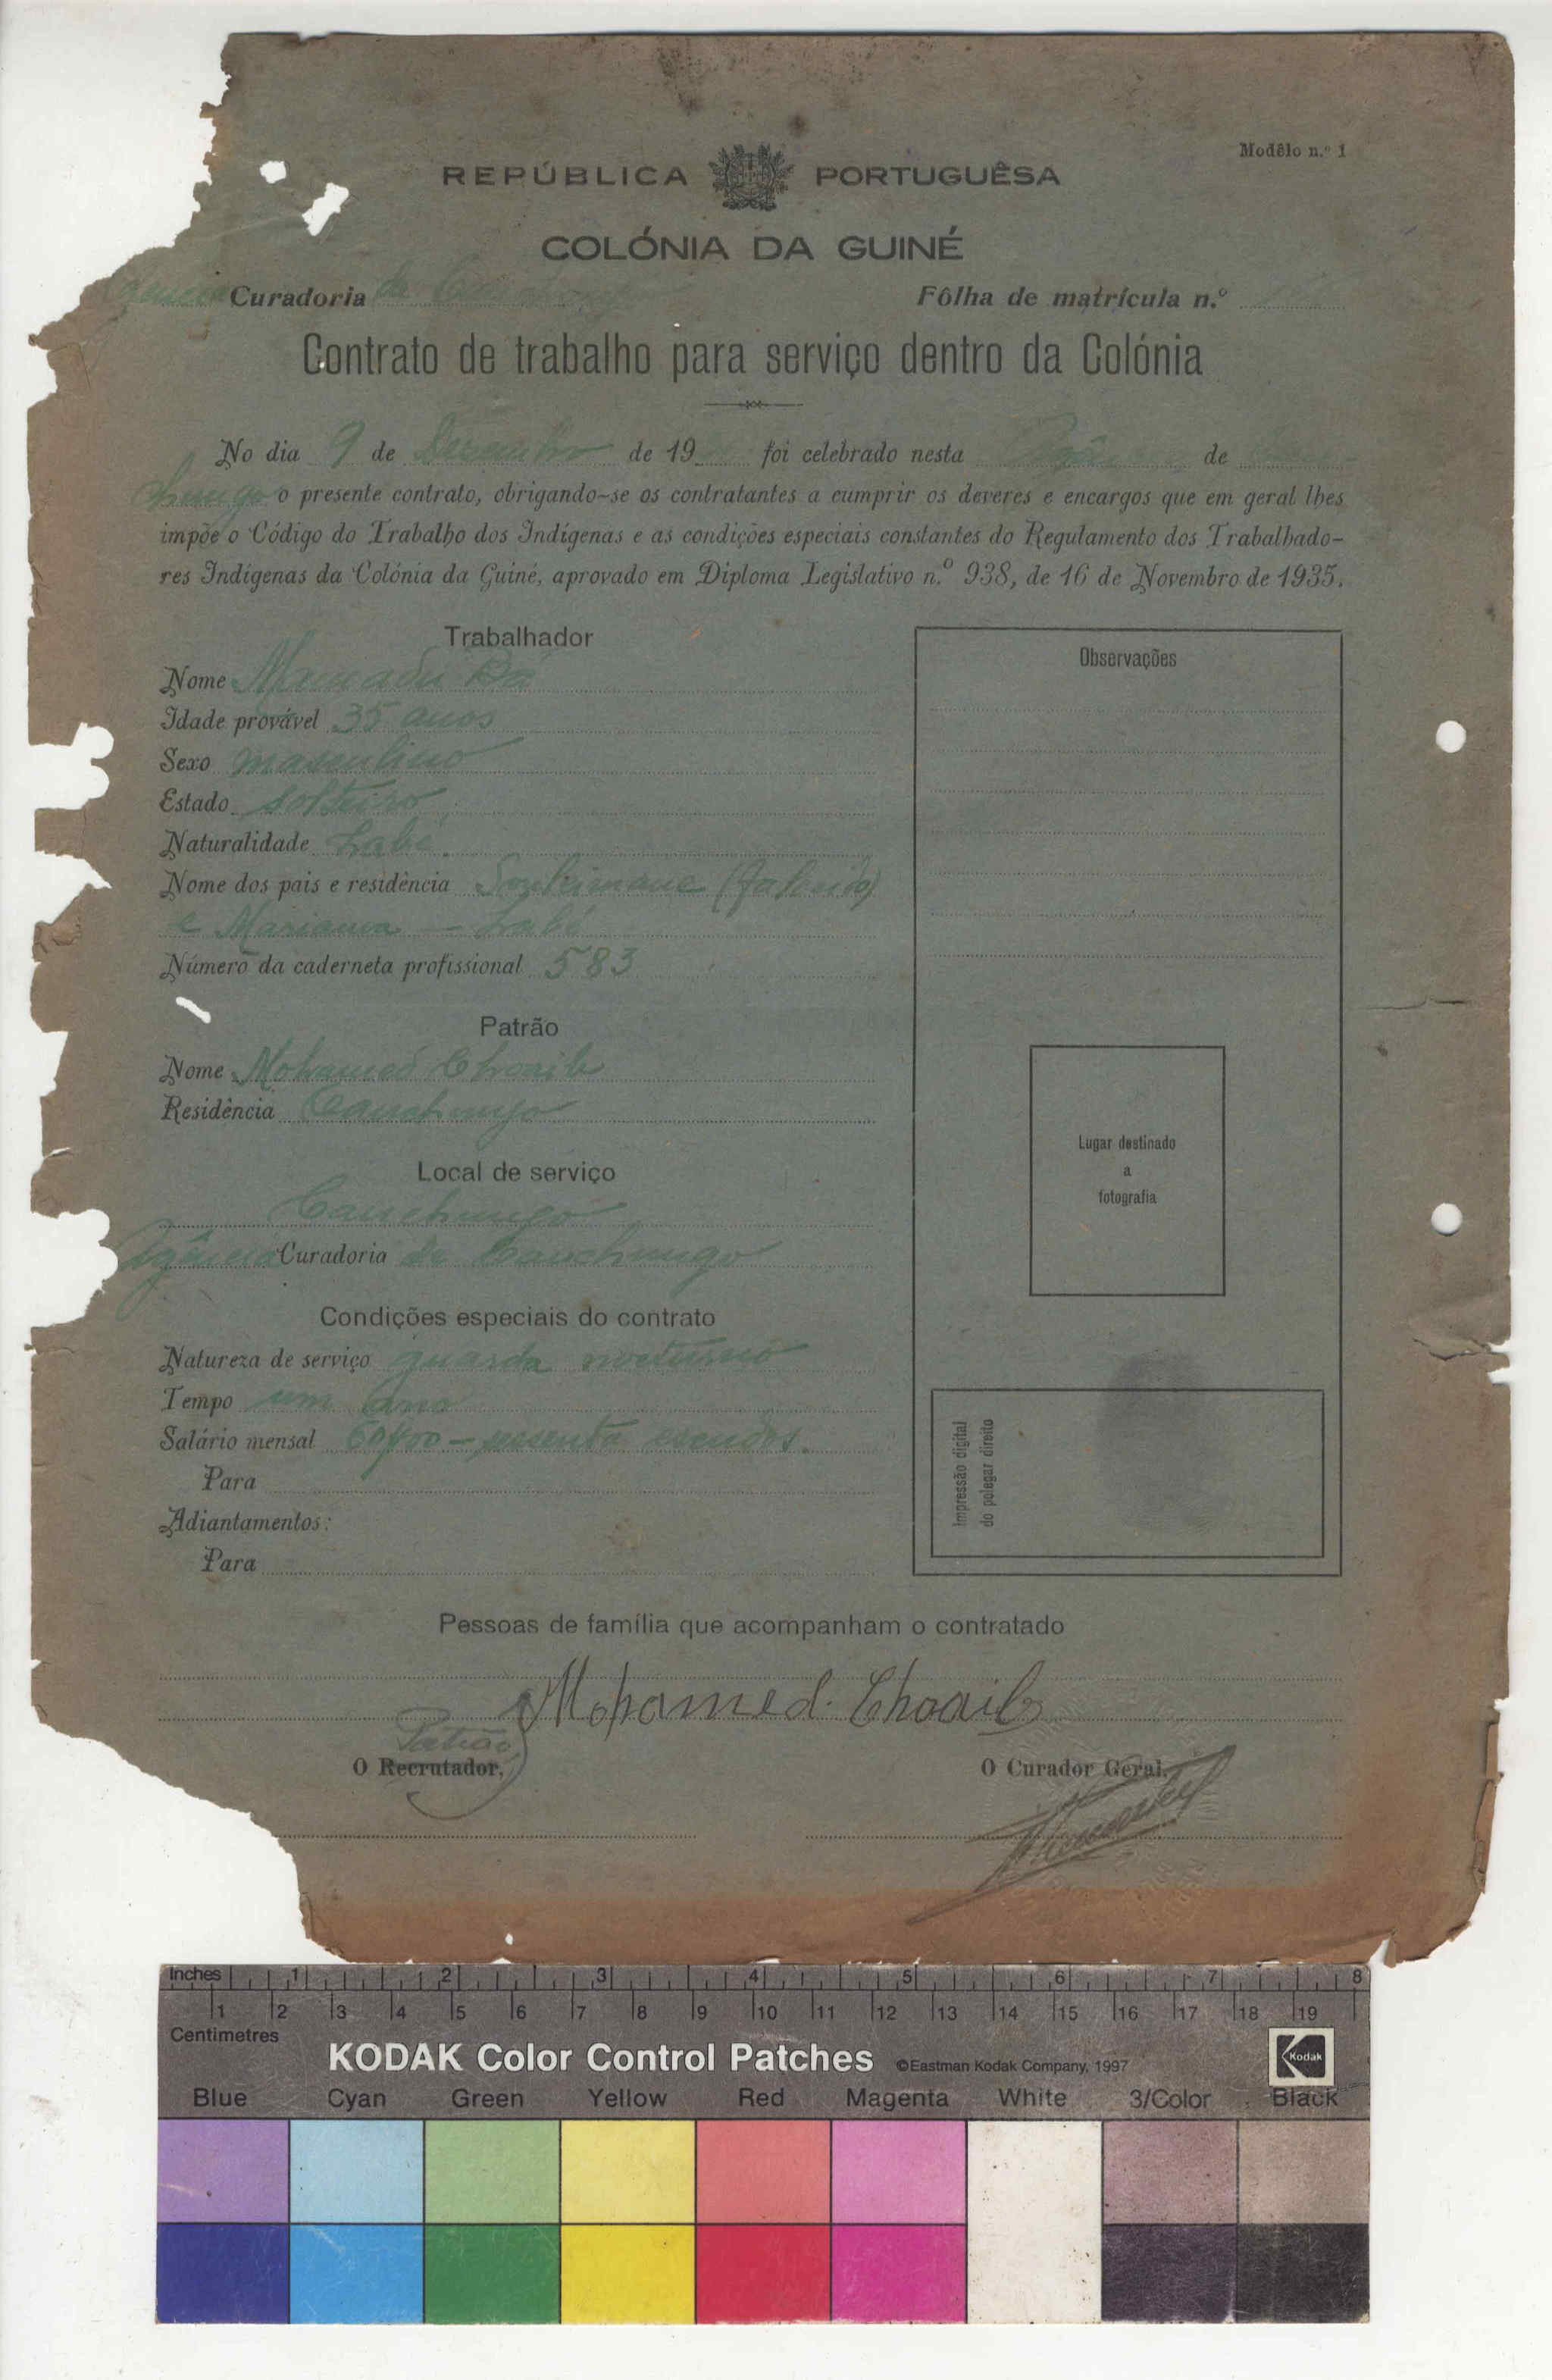 Modêlo n.º 1
REPÚBLICA PORTUGUÊSA
COLÓNIA DA GUINÉ
Curadoria de Fôlha de matrícula n.º
Contrato de trabalho para serviço dentro da Colónia
No dia 9 de Dezembro de 19 foi celebrado nesta de
chungo o presente contrato, obrigando-se os contratantes a cumprir os deveres e encargos que em geral lhes
impõe o Código do Trabalho dos Indígenas e as condições especiais constantes do Regulamento dos Trabalhado-
res Indígenas da Colónia da Guiné, aprovado em Diploma Legislativo n.º 938, de 16 de Novembro de 1935.
Trabalhador
Nome Mamadu Bá
Idade provável 35 anos
Sexo masculino
Estado solteiro
Naturalidade Labé
Nome dos pais e residência Souleimane (falecido)
e Mariama — Labé
Número da caderneta profissional 583
Patrão
Nome Mohamed Choaib
Residência Canchungo
Local de serviço
Canchungo
Agência Curadoria de Canchungo
Condições especiais do contrato
Natureza de serviço guarda nocturno
Tempo um ano
Salário mensal 60$00 – sesenta escudos.
Para
Adiantamentos:
Para
Observações
Lugar destinado
a
fotografia
Impressão digital
do polegar direito
Pessoas de família que acompanham o contratado
Mohamed Choaib
Patrão
O Recrutador,
O Curador Geral,
Inches 1 2 3 4 5 6 7 8
1 2 3 4 5 6 7 8 9 10 11 12 13 14 15 16 17 18 19
Centimetres
KODAK Color Control Patches ©Eastman Kodak Company, 1997 Kodak
Blue Cyan Green Yellow Red Magenta White 3/Color Black